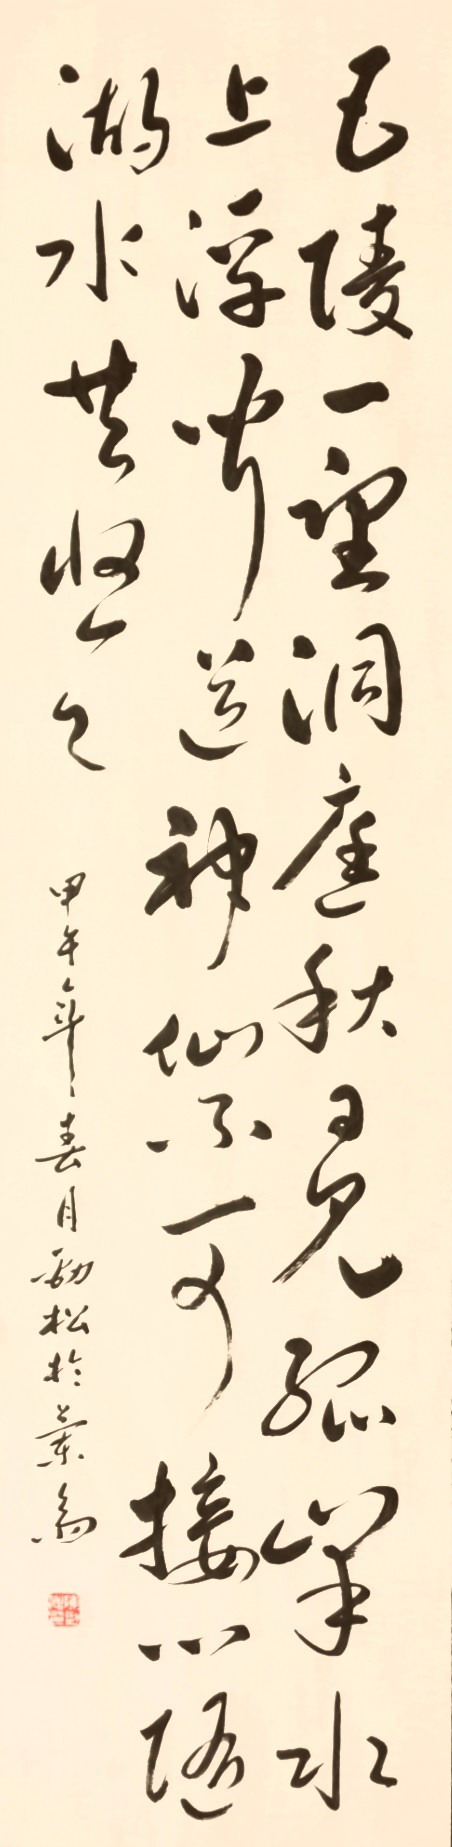 巴陵一望洞庭秋日見孤峯水
上浮聞道神仙不可接心隨
湖水共悠々
甲午年春月勁松於